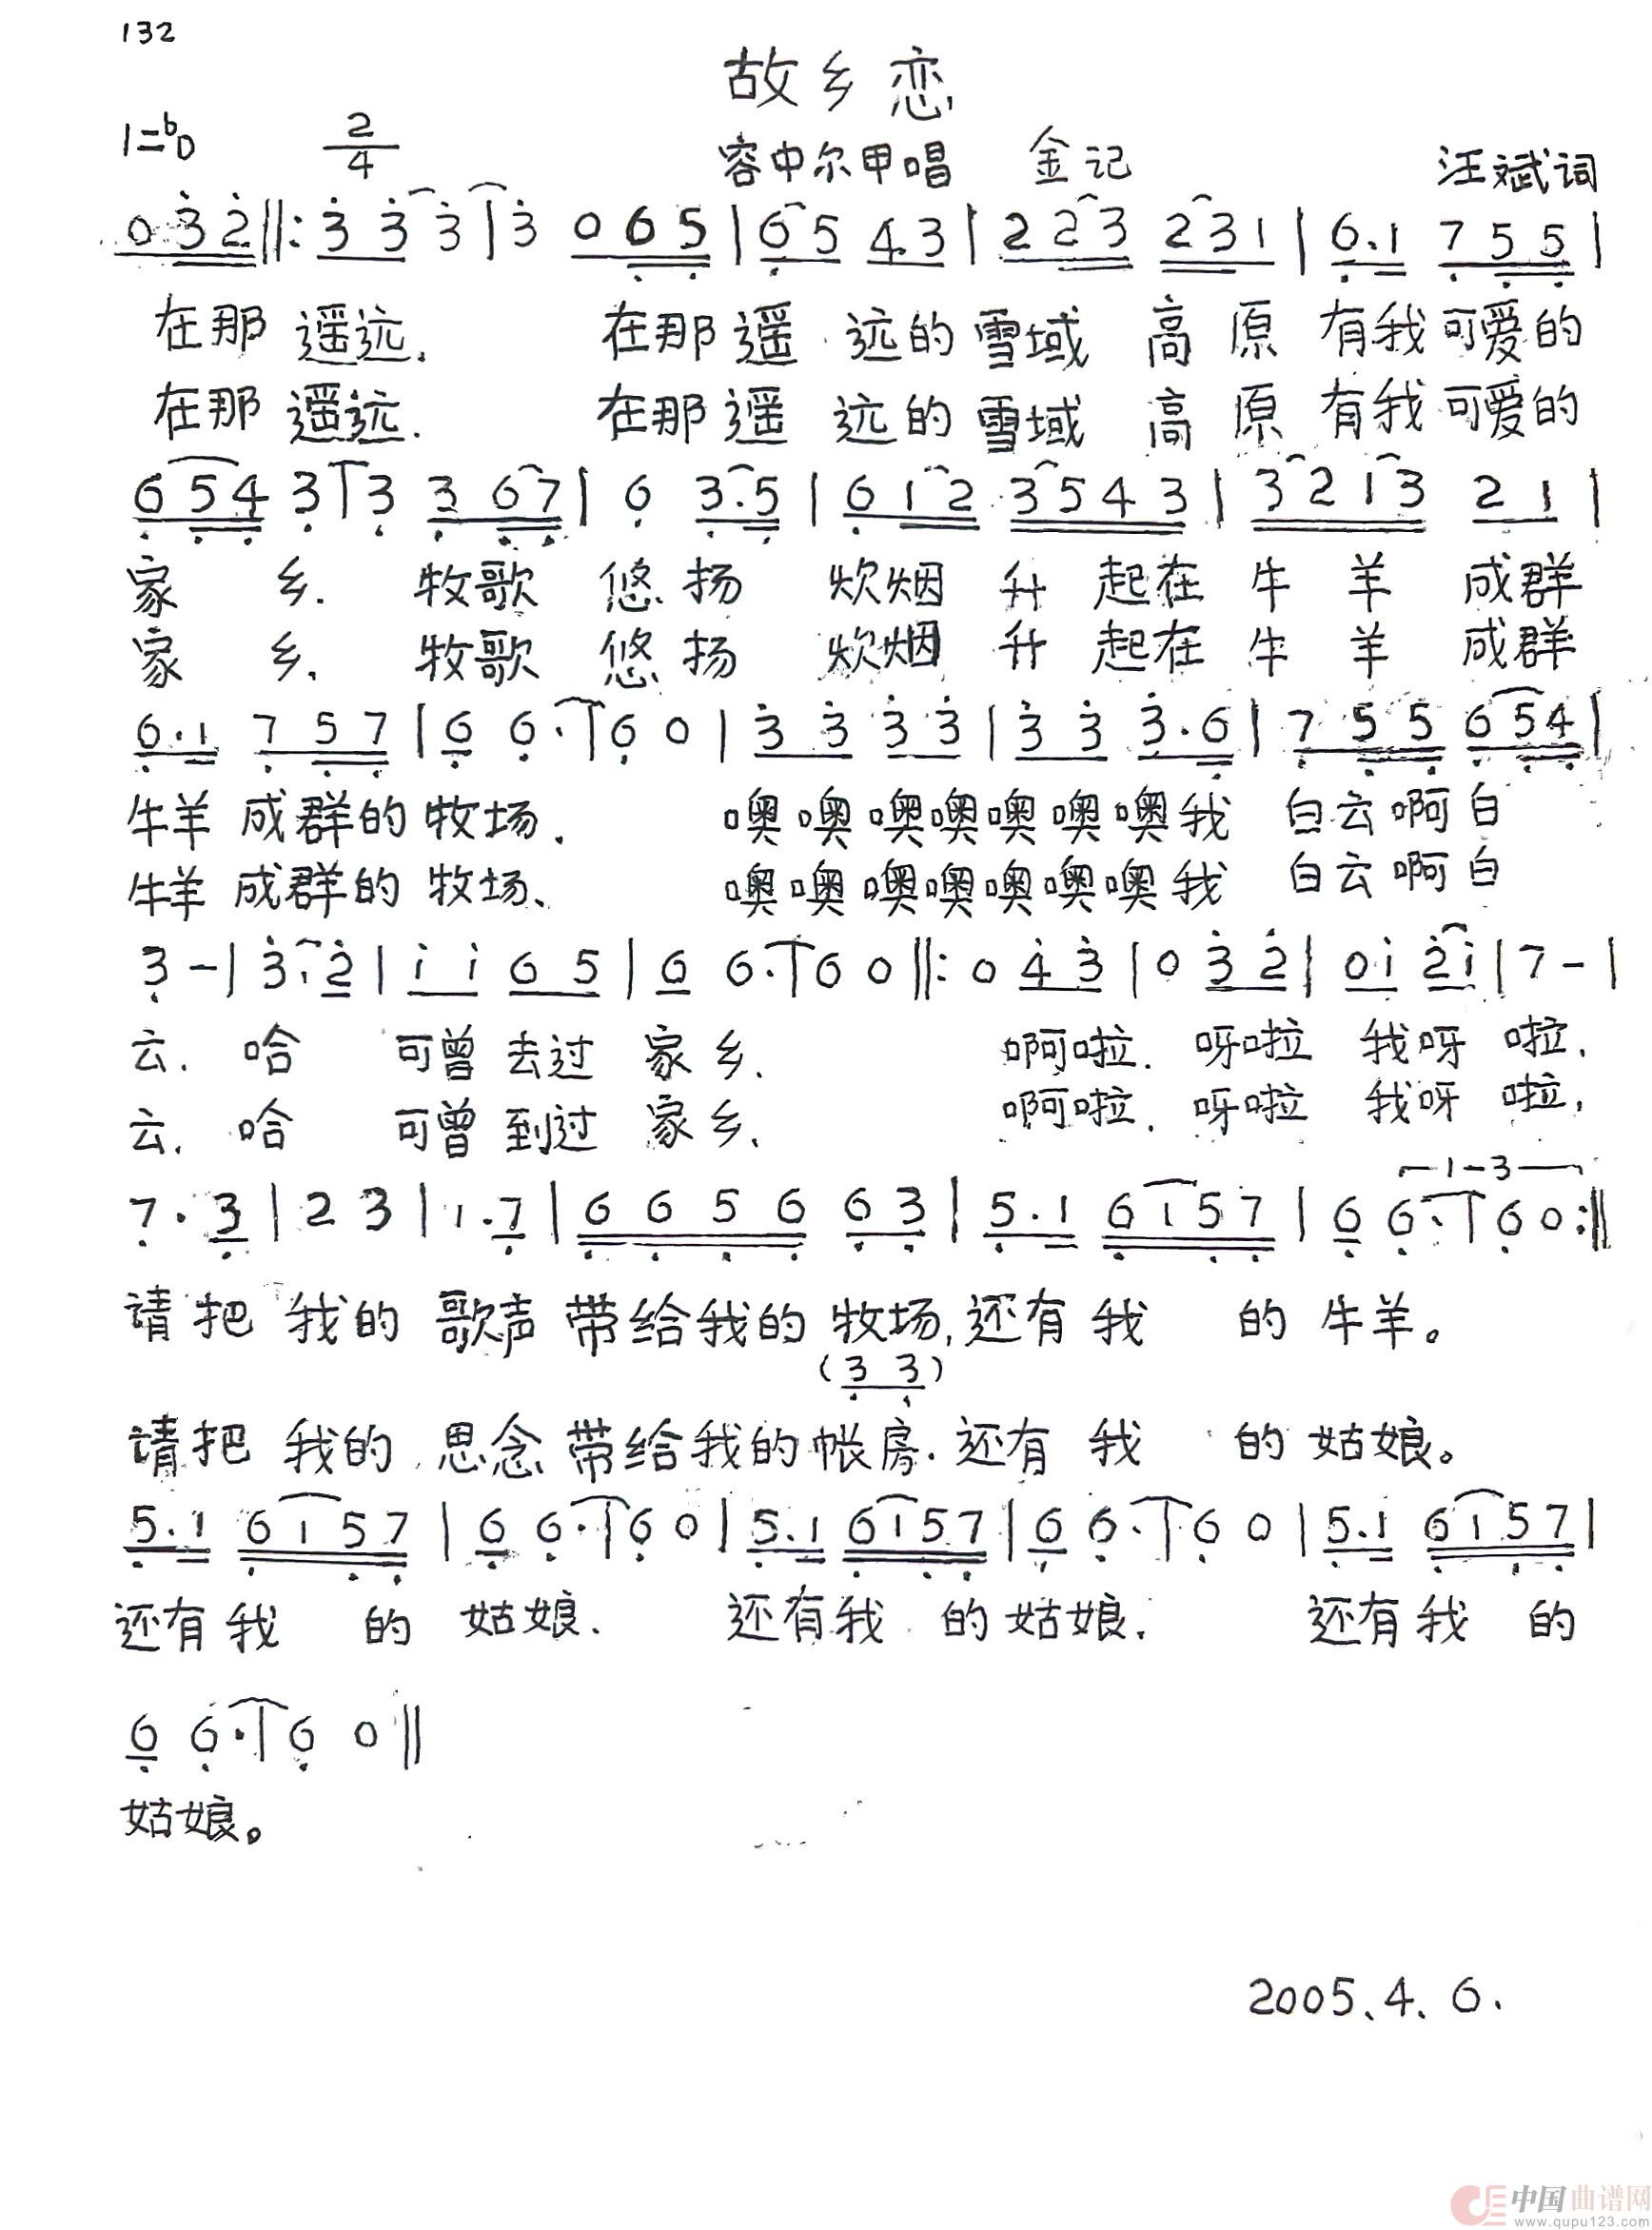 132
故乡恋
1=ᵇD 2/4 容中尔甲唱 金记 汪斌词
0 3̇ 2̇ ‖: 3̇ 3̇ 3̇ | 3̇ 0 6̣ 5̣ | 6̣ 5 4 3 | 2 2 3 2 3 1 | 6̣. 1 7̣ 5̣ 5̣ |
在那 遥远. 在那遥 远的雪域 高 原 有我可爱的
在那 遥远. 在那遥 远的雪域 高 原 有我可爱的
6̣ 5̣ 4̣ 3̣ | 3̣ 3̣ 6̣ 7̣ | 6̣ 3̣. 5̣ | 6̣ 1 2 3 5 4 3 | 3 2 1 3 2 1 |
家 乡. 牧歌 悠扬 炊烟 升 起在 牛 羊 成群
家 乡. 牧歌 悠扬 炊烟 升 起在 牛 羊 成群
6̣. 1 7̣ 5̣ 7̣ | 6̣ 6̣. | 6̣ 0 | 3̇ 3̇ 3̇ 3̇ | 3̇ 3̇ 3̇. 6̣ | 7̣ 5̣ 5̣ 6̣ 5̣ 4̣ |
牛羊 成群的 牧场. 噢噢噢噢噢噢噢我 白云啊白
牛羊 成群的 牧场、 噢噢噢噢噢噢噢我 白云啊白
3̣ - | 3̇. 2̇ | 1̇ 1̇ 6 5 | 6 6. | 6 0 ‖: 0 4̇ 3̇ | 0 3̇ 2̇ | 0 1̇ 2̇ 1̇ | 7 - |
云. 哈 可曾 去过 家乡. 啊啦. 呀啦 我呀 啦.
云. 哈 可曾 到过 家乡. 啊啦. 呀啦 我呀 啦,
1-3
7̣. 3̣ | 2 3 | 1. 7̣ | 6̣ 6̣ 5̣ 6̣ 6̣ 3̣ | 5̣. 1 6̣ 1 5̣ 7̣ | 6̣ 6̣. | 6̣ 0 :‖
请把 我的 歌声 带给我的 牧场,还有 我 的 牛羊。
(3̣ 3̣)
请把 我的 思念 带给我的帐房. 还有 我 的 姑娘。
5̣. 1 6̣ 1 5̣ 7̣ | 6̣ 6̣. | 6̣ 0 | 5̣. 1 6̣ 1 5̣ 7̣ | 6̣ 6̣. | 6̣ 0 | 5̣. 1 6̣ 1 5̣ 7̣ |
还有我 的 姑娘. 还有我 的姑娘. 还有我 的
6̣ 6̣. | 6̣ 0 ‖
姑娘。
2005.4.6.
中国曲谱网
www.qupu123.com